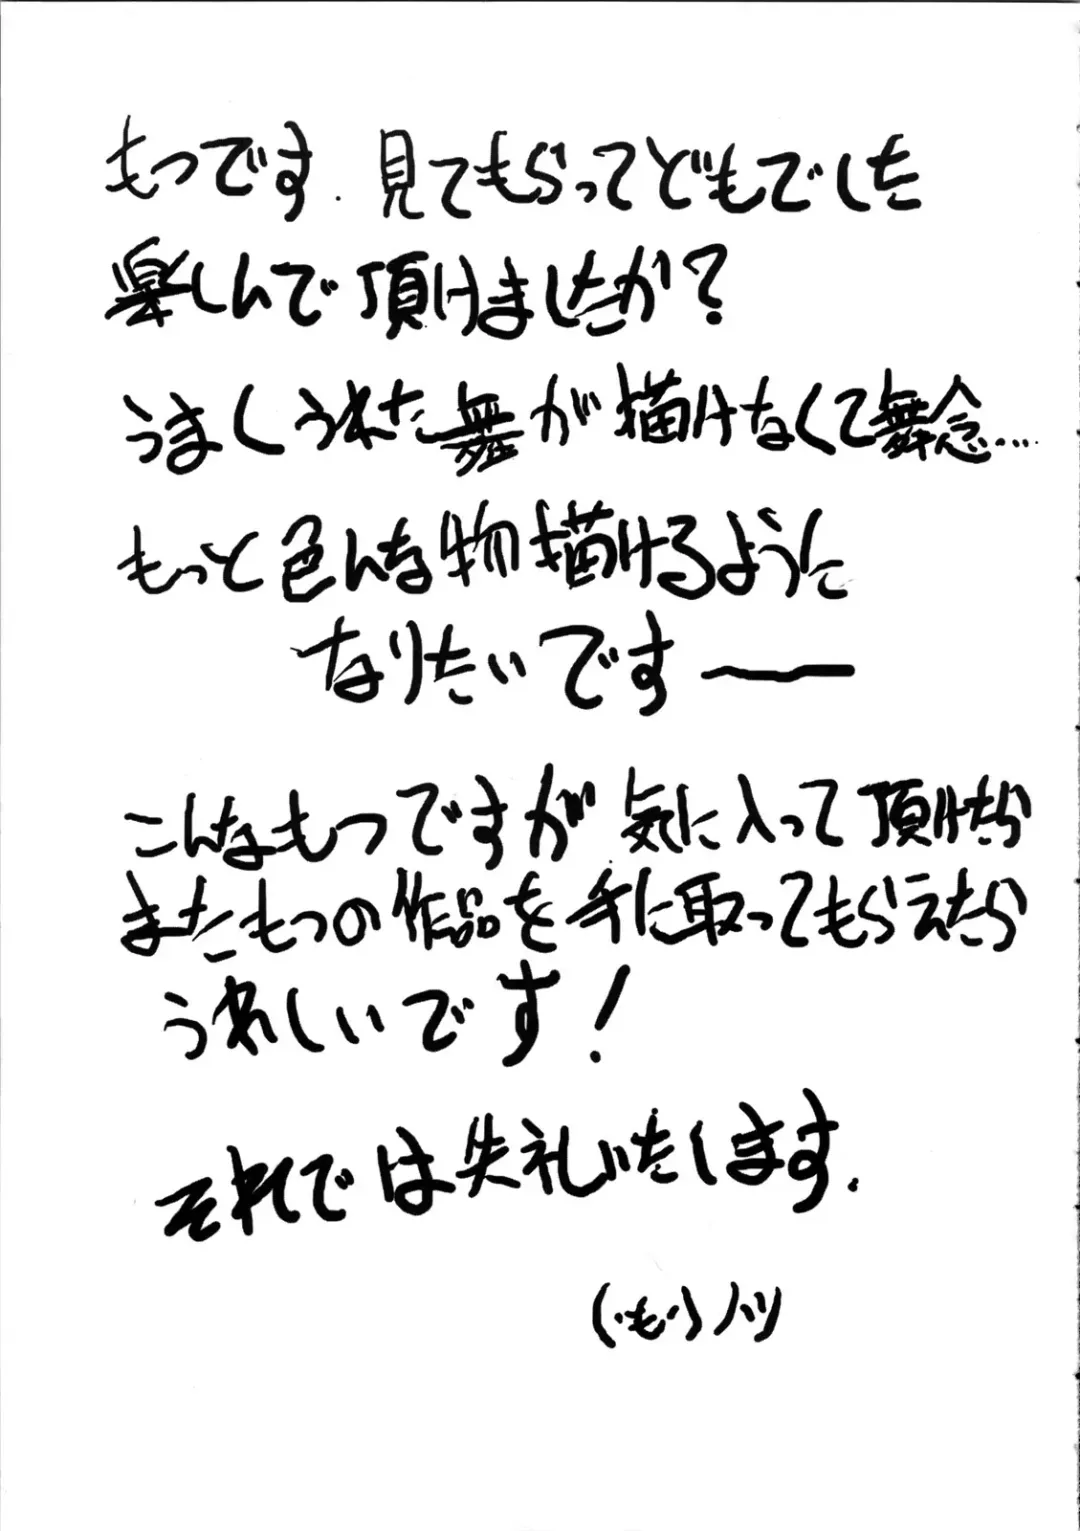 もつです. 見てもらってどもでした
楽しんで頂けましたか?
うまくうれた舞が描けなくて無念....
もっと色んな物描けるように
なりたいですー
こんなもつですが気に入って頂けたら
またもつの作品を手に取ってもらえたら
うれしいです!
それでは失礼いたします.
(・も・)ノシ